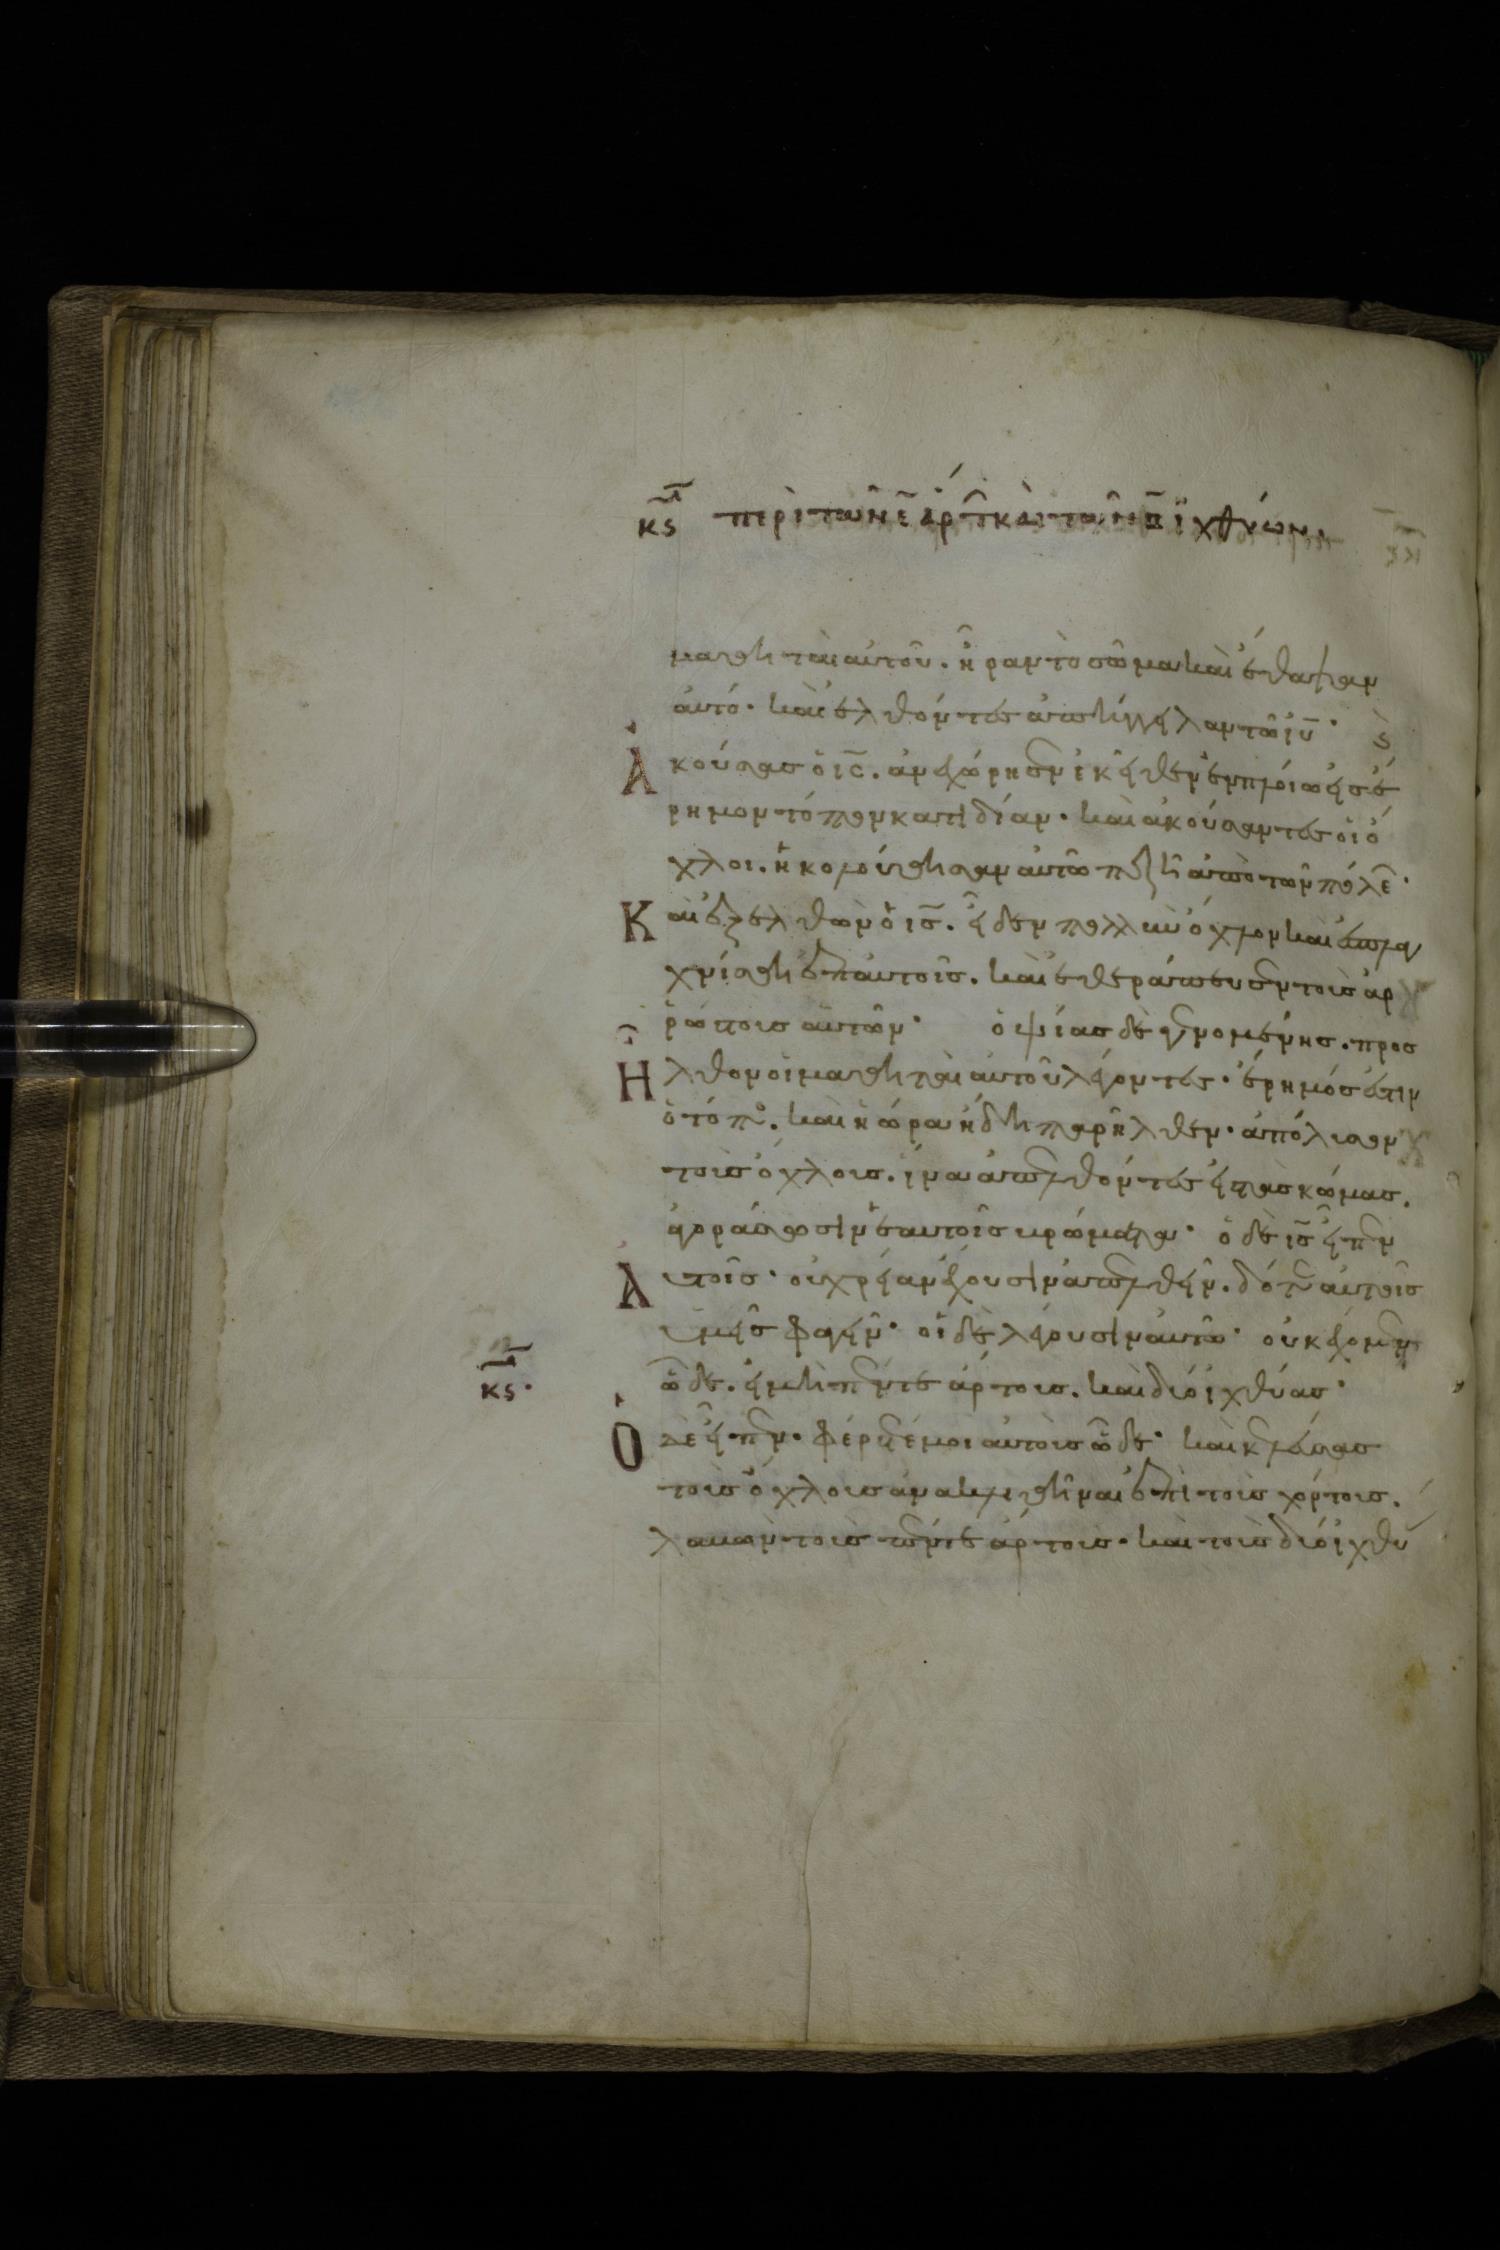 κϛ περὶ τῶν ε̄ ἄρτ καὶ τῶν β̄ ἰχθύων.
μαθηταὶ αὐτοῦ. ἦραν τὸ σῶμα καὶ ἔθαψαν
αὐτό· καὶ ἐλθόντες ἀπήγγειλαν τῶ ἰῦ· Καὶ
Ἀκούσας ὁ ις̄. ἀνεχώρησεν ἐκεῖθεν ἐν πλοίω εἰς ἔ
ρημον τόπον κατιδίαν· καὶ ἀκούσαντες οἱ ὄ
χλοι. ἠκολούθησαν αὐτῶ πεζῆ ἀπὸ τῶν πόλε̄·
Καὶ ἐξελθὼν ὁ ις̄. εἶδεν πολλὺν ὄχλον καὶ ἐσπλα
χνίσθη ἐπαυτοῖς. καὶ ἐθεράπευσεν τοὺς ἀρ
ρώστους αὐτῶν· ὀψίας δὲ γενομένης. προσ
Η͂λθον οἱ μαθηταὶ αὐτοῦ λέγοντες· ἔρημός ἐστιν
ὁ τόπο. καὶ ἡ ὥρα ἤδη παρῆλθεν· ἀπόλυσον
τοὺς ὄχλους. ἵνα ἀπελθόντες εἰς τὰς κώμας.
ἀγοράσωσιν ἑαυτοῖς βρώματα· ὁ δὲ ις̄ εἶπεν
Αὐτοῖς· οὐ χρείαν ἔχουσιν ἀπελθεῖν. δότε αὐτοῖς
ὑμεῖς φαγεῖν· οἱ δὲ λέγουσιν αὐτῶ· οὐκ ἔχομεν
κϛ· ὧδε. εἰ μὴ πέντε ἄρτους. καὶ δύο ἰχθύας·
Ὁ δὲ εἶπεν· φέρετέ μοι αὐτοὺς ὧδε· καὶ κελεύσας
τοὺς ὄχλους ἀνακλιθῆναι ἐπὶ τοὺς χόρτους.
λαβὼν τοὺς πέντε ἄρτους· καὶ τοὺς δύο ἰχθύ